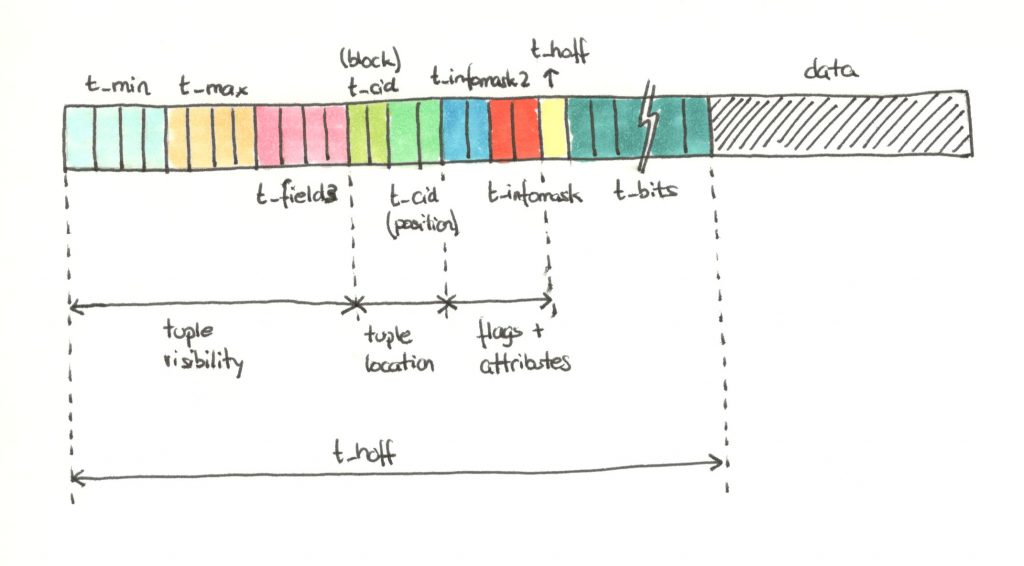 t_min
t_max
(block)
t_cid
t_infomask2
t_hoff
data
t_field3
t_cid
(position)
t_infomask
t_bits
tuple
visibility
tuple
location
flags +
attributes
t_hoff